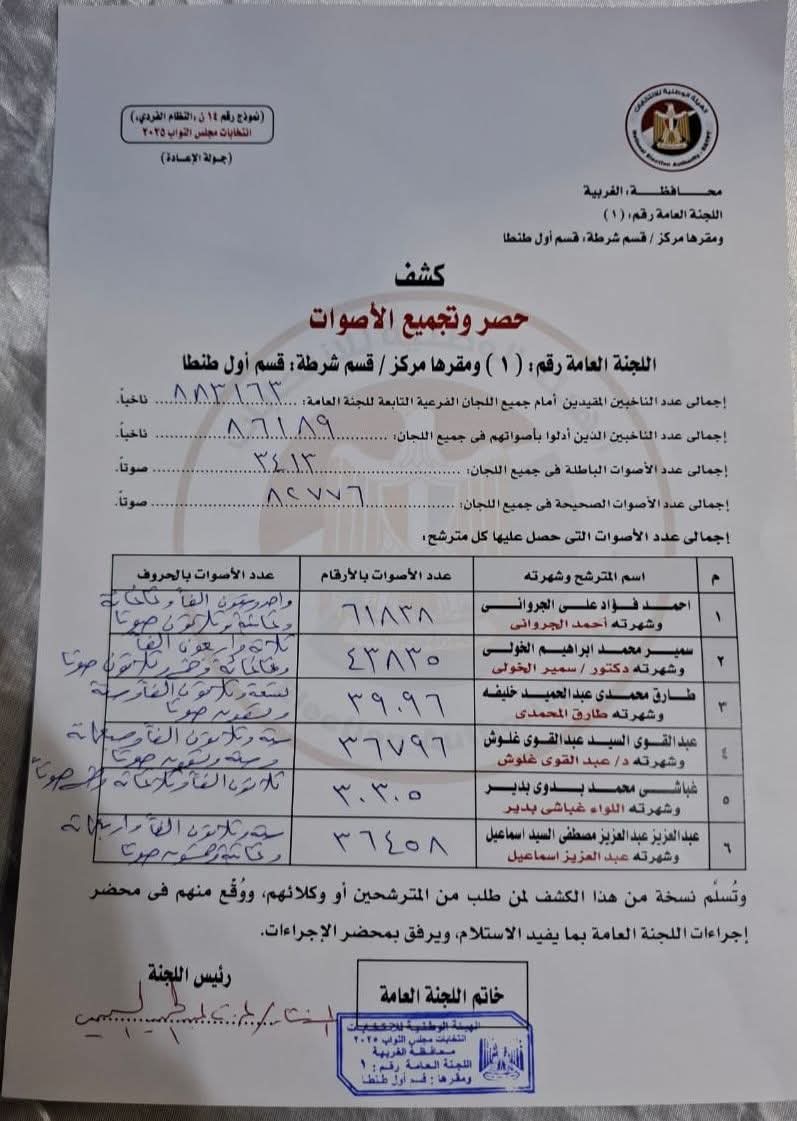 (نموذج رقم ١٤ ن ،النظام الفردي،)
انتخابات مجلس النواب ٢٠٢٥
(جولة الإعادة)
الهيئة الوطنية للانتخابات
National Election Authority - EGYPT
محـــافظـــة: الغربية
اللجنة العامة رقم: (١)
ومقرها مركز / قسم شرطة: قسم أول طنطا
كشف
حصر وتجميع الأصوات
اللجنة العامة رقم: (١) ومقرها مركز / قسم شرطة: قسم أول طنطا
إجمالى عدد الناخبين المقيدين أمام جميع اللجان الفرعية التابعة للجنة العامة: ٨٨٣١٦٣ ناخباً.
إجمالى عدد الناخبين الذين أدلوا بأصواتهم فى جميع اللجان: ٨٦١٨٩ ناخباً.
إجمالى عدد الأصوات الباطلة فى جميع اللجان: ٣٤١٣ صوتاً.
إجمالى عدد الأصوات الصحيحة فى جميع اللجان: ٨٢٧٧٦ صوتاً.
إجمالى عدد الأصوات التى حصل عليها كل مترشح:
م اسم المترشح وشهرته عدد الأصوات بالأرقام عدد الأصوات بالحروف
١ احمد فؤاد على الجروانى ٦١٨٣٨ واحد وستون الفاً وثمانمائة
وشهرته أحمد الجروانى وثمانية وثلاثون صوتا
٢ سمير محمد ابراهيم الخولى ٤٣٨٣٥ ثلاثة واربعون الفا
وشهرته دكتور / سمير الخولى وثمانمائة وخمسة وثلاثون صوتا
٣ طارق محمدى عبدالحميد خليفه ٣٩٠٩٦ تسعة وثلاثون الفا وستة
وشهرته طارق المحمدى وتسعون صوتا
٤ عبدالقوى السيد عبدالقوى غلوش ٣٦٧٩٦ ستة وثلاثون الفا وسبعمائة
وشهرته د/ عبد القوى غلوش وستة وتسعون صوتا
٥ غباشى محمد بدوى بدير ٣٠٣٠٥ ثلاثون الفا وثلاثمائة وخمسة صوتاً
وشهرته اللواء غباشى بدير
٦ عبدالعزيز عبدالعزيز مصطفى السيد اسماعيل ٣٦٤٥٨ ستة وثلاثون الفا واربعمائة
وشهرته عبد العزيز اسماعيل وثمانية وخمسون صوتا
وتُسلَّم نسخة من هذا الكشف لمن طلب من المترشحين أو وكلائهم، ووُقّع منهم فى محضر
إجراءات اللجنة العامة بما يفيد الاستلام، ويرفق بمحضر الإجراءات.
خاتم اللجنة العامة
رئيس اللجنة
الهيئة الوطنية للانتخابات
انتخابات مجلس النواب ٢٠٢٥
محافظة الغربية
اللجنة العامة رقم: ١
ومقرها: قسم أول طنطا